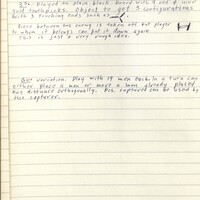 Gm. Played on plain block board with 4 and 4 wide
and toothpicks. Object to get 3 configurations
with 3 touching ends such as
Piece between two enemy is taken off but player
to whom it belongs can put it down again
This is just a very rough idea.
Get variation. Play with 19 men each. In a turn can
either place a man or move a man already placed
any distance orthogonally. Pcs. captured can be used by
the capturer.